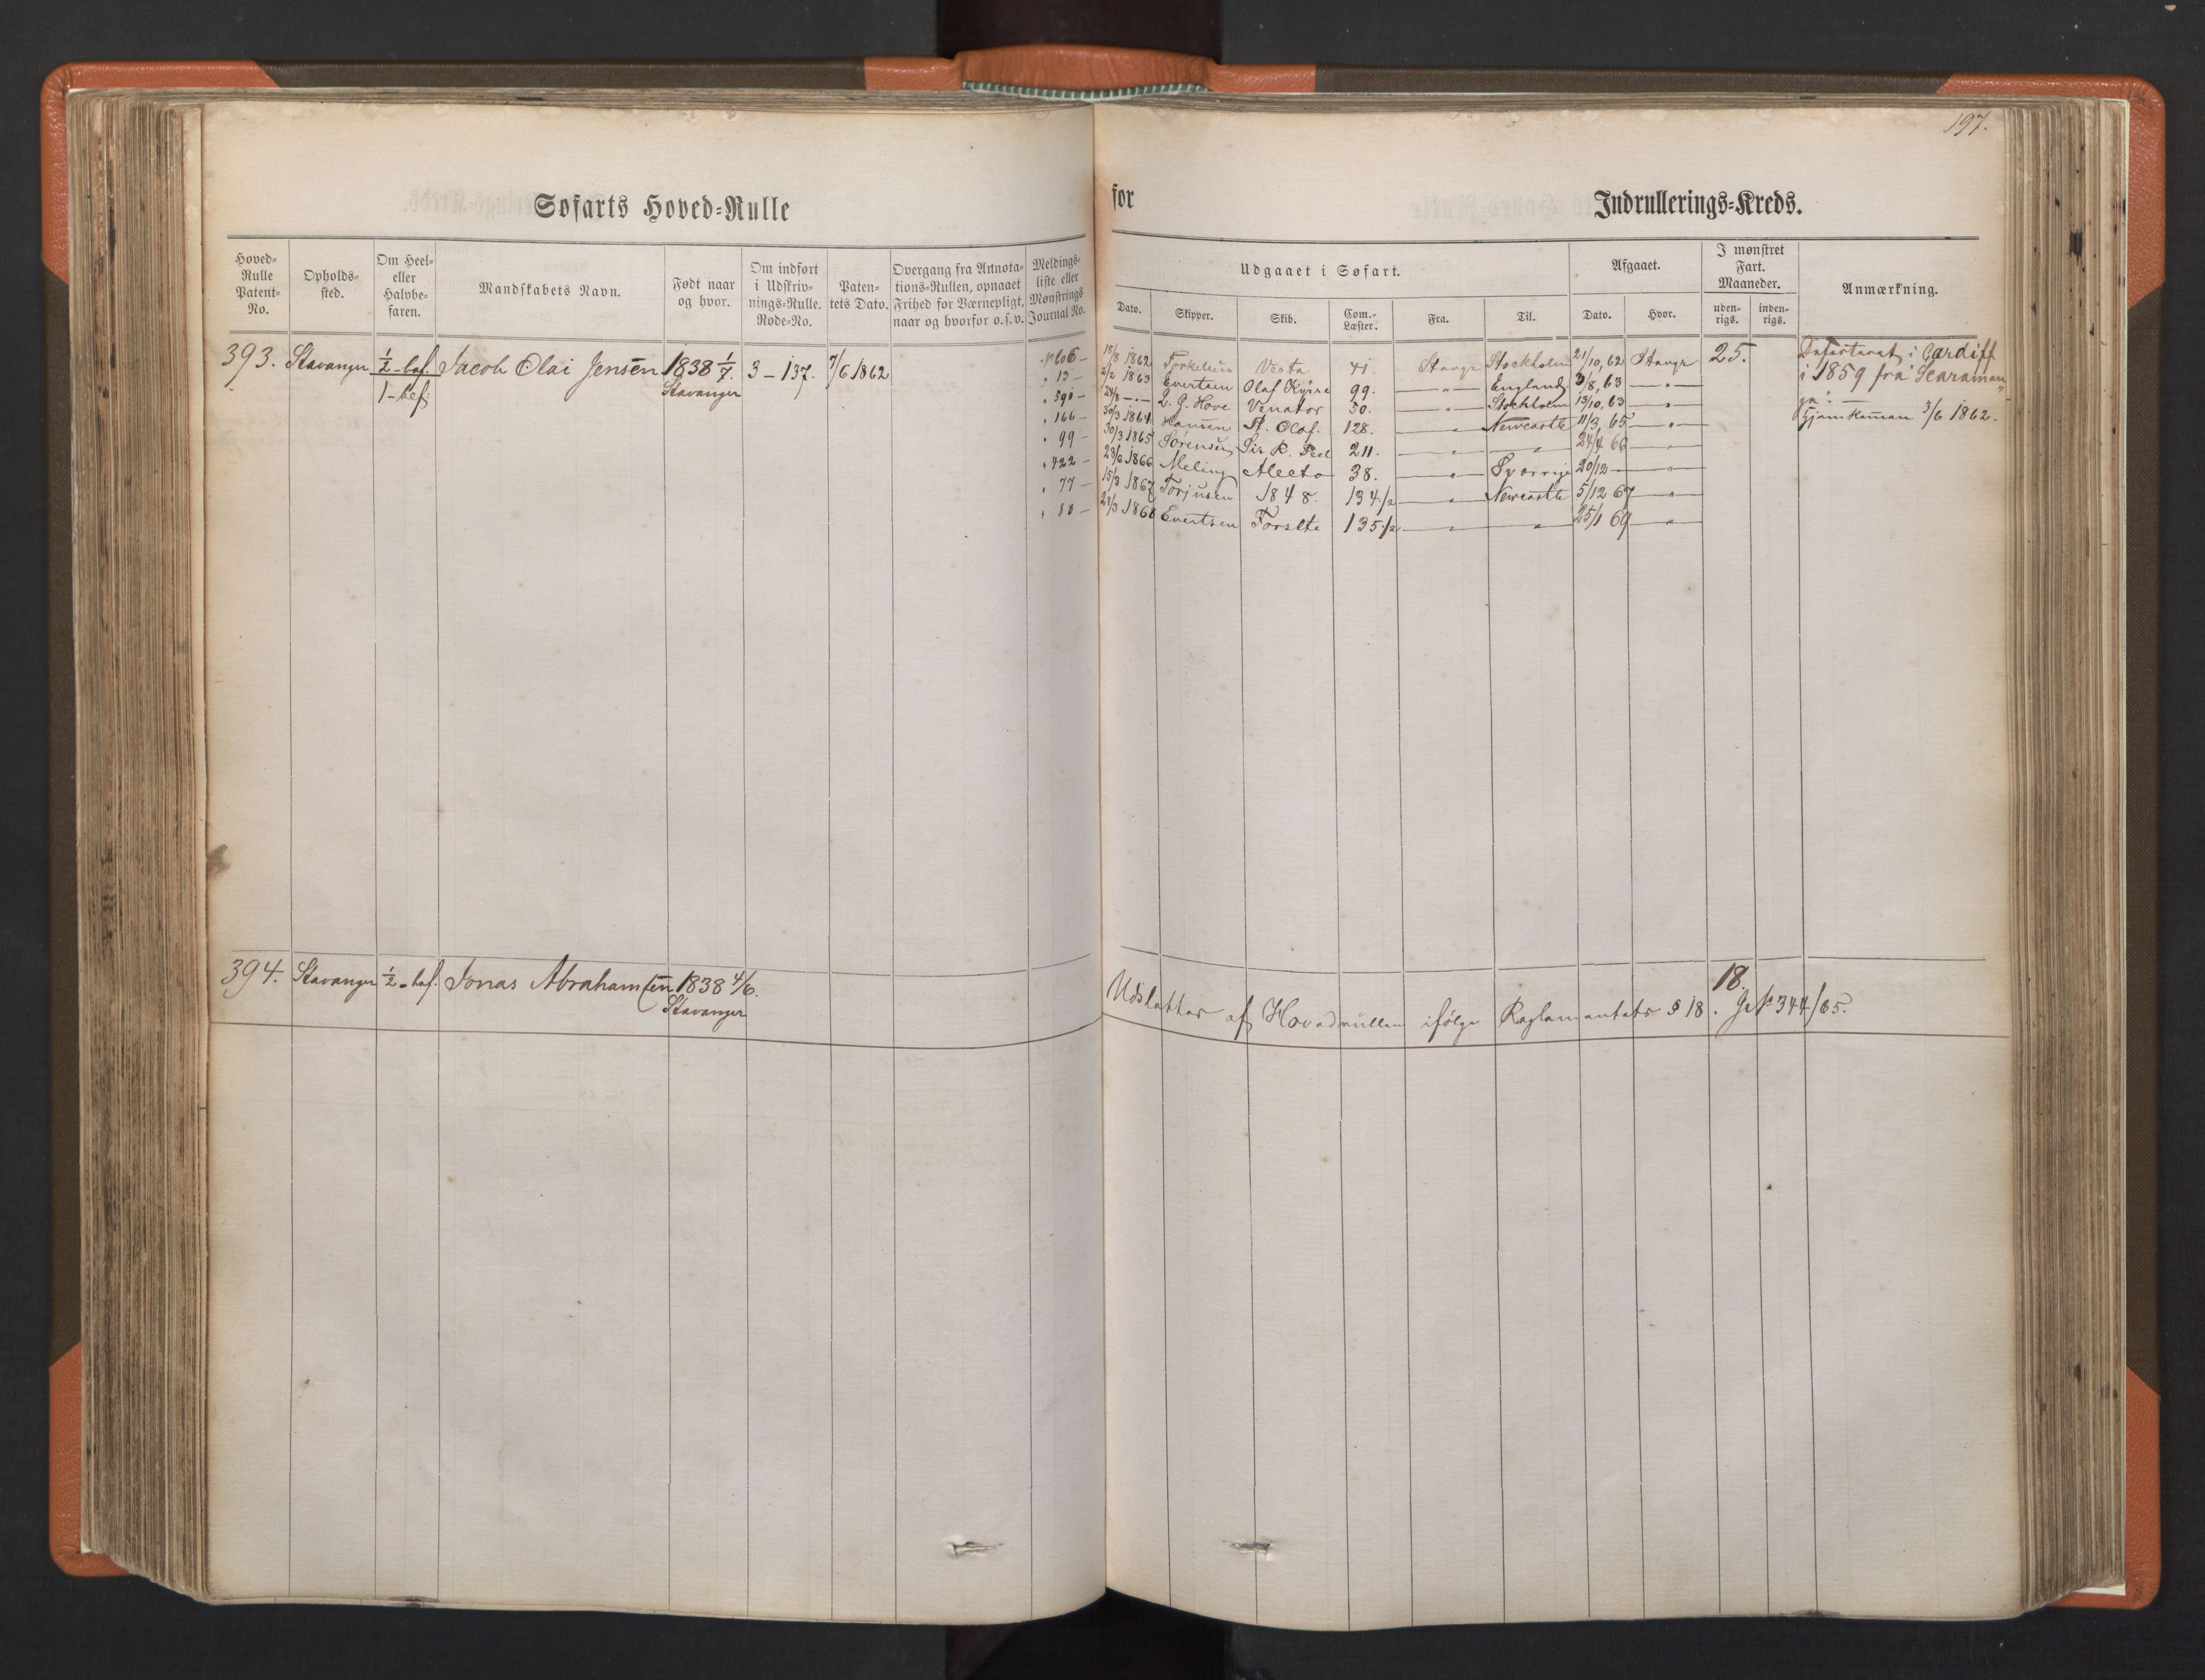 197.
Søfarts Hoved-Rulle
for Indrullerings-Kreds.
Hoved-Rulle Patent-No.
Opholds-sted.
Om Heel- eller Halvbe-faren.
Mandskabets Navn.
Født naar og hvor.
Om indført i Udskriv-nings-Rulle. Rode-No.
Paten-tets Dato.
Overgang fra Annota-tions-Rullen, opnaaet Frihed for Værnepligt, naar og hvorfor o. s. v.
Meldings-liste eller Mønstrings Journal No.
Udgaaet i Søfart.
Dato.
Skipper.
Skib.
Com.-Læster.
Fra.
Til.
Afgaaet.
Dato.
Hvor.
I mønstret Fart. Maaneder.
uden-rigs.
inden-rigs.
Anmærkning.
393. Stavanger ½-bef. Jacob Olai Jensen 1838 1/7. 3 - 137. 7/6 1862
1-bef: Stavanger
No 606 - 18/8 1862 Torkelsen Vesta 41. Stavgr Stockholm 21/10, 62 Stavgr 25.
" 13 - 2/2 1863 Evertsen Olaf Kyrre 99. — " — England 3/8, 63 — " —
" 590 - 24/8 - " - L. G. Hove Venator 50. — " — Stockholm 13/10, 63 — " —
" 166 - 30/3 1864 Hansen St. Olaf. 128. — " — Newcastle 11/3, 65 — " —
" 99 - 30/3 1865 Sørensen Sir R. Peel 211. — " — — " — 24/4 66 — " —
" 422 - 23/6 1866 Meling Alecto 38. — " — Sverrige 20/12 - — " —
" 77 - 15/3 1867 Torjusen 1848. 134 ½ — " — Newcastle 5/12 67 — " —
" 88 - 28/3 1868 Evertsen 135 ½ — " — — " — 25/1 69 — " —
Deserteret i Cardiff
i 1859 fra Scaraman
ga. —
Hjemkommen 3/6 1862.
394. Stavanger ½-bef. Jonas Abrahamsen 1838 4/6.
Stavanger
18.
Udslettes af Hovedrullen ifølge Reglementets § 18. No 344/65.